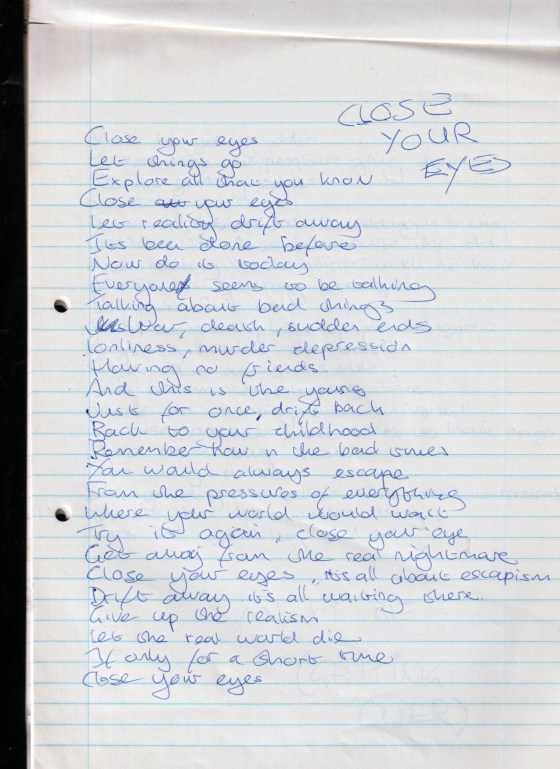 CLOSE
YOUR
EYES
Close your eyes
Let things go
Explore all that you know
Close your eyes
Let reality drift away
It's been done before
Now do it today
Everyone seems to be talking
Talking about bad things
War, death, sudden ends
lonliness, murder depression
Having no friends
And this is the young
Just for once, drift back
Back to your childhood
Remember how in the bad times
You would always escape
From the pressures of everything
Where your world would wait
Try it again, close your eye
Get away from the real nightmare
Close your eyes, it's all about escapism
Drift away it's all waiting there
Give up the realism
Let the real world die
If only for a short time
Close your eyes